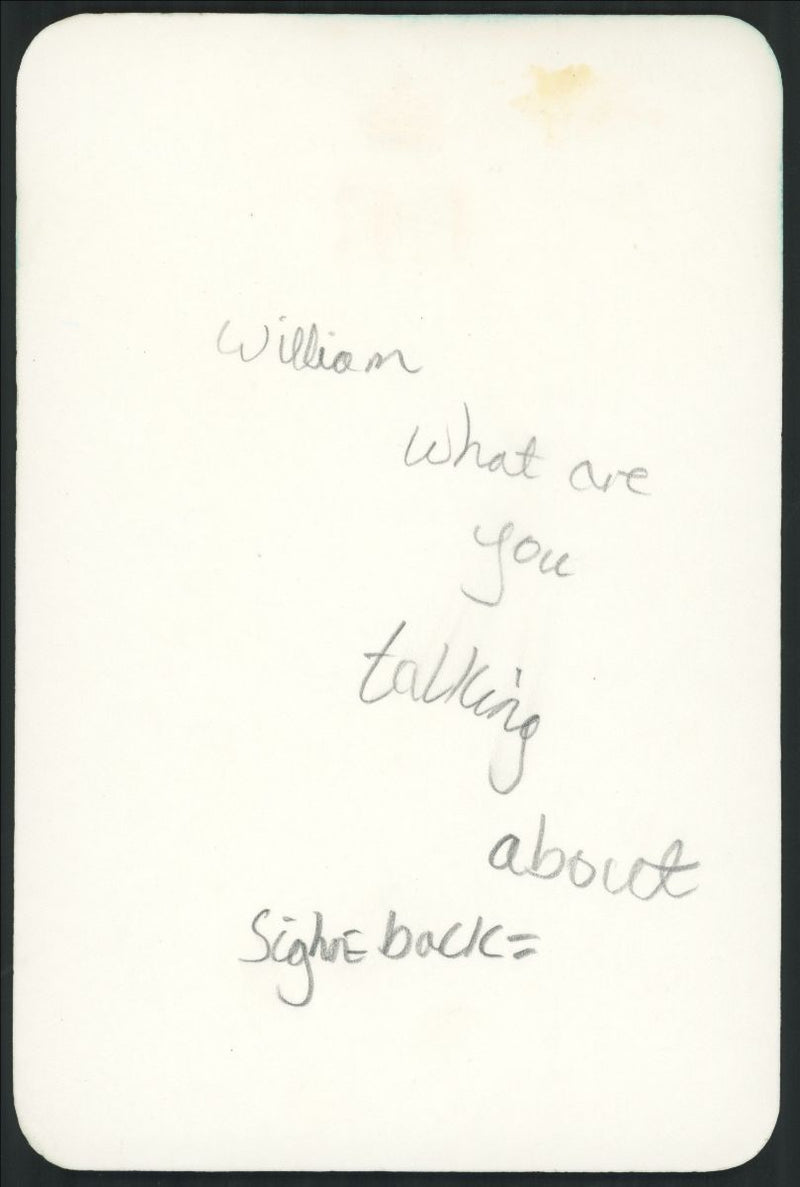 William
What are
you
talking
about
Sighne back=